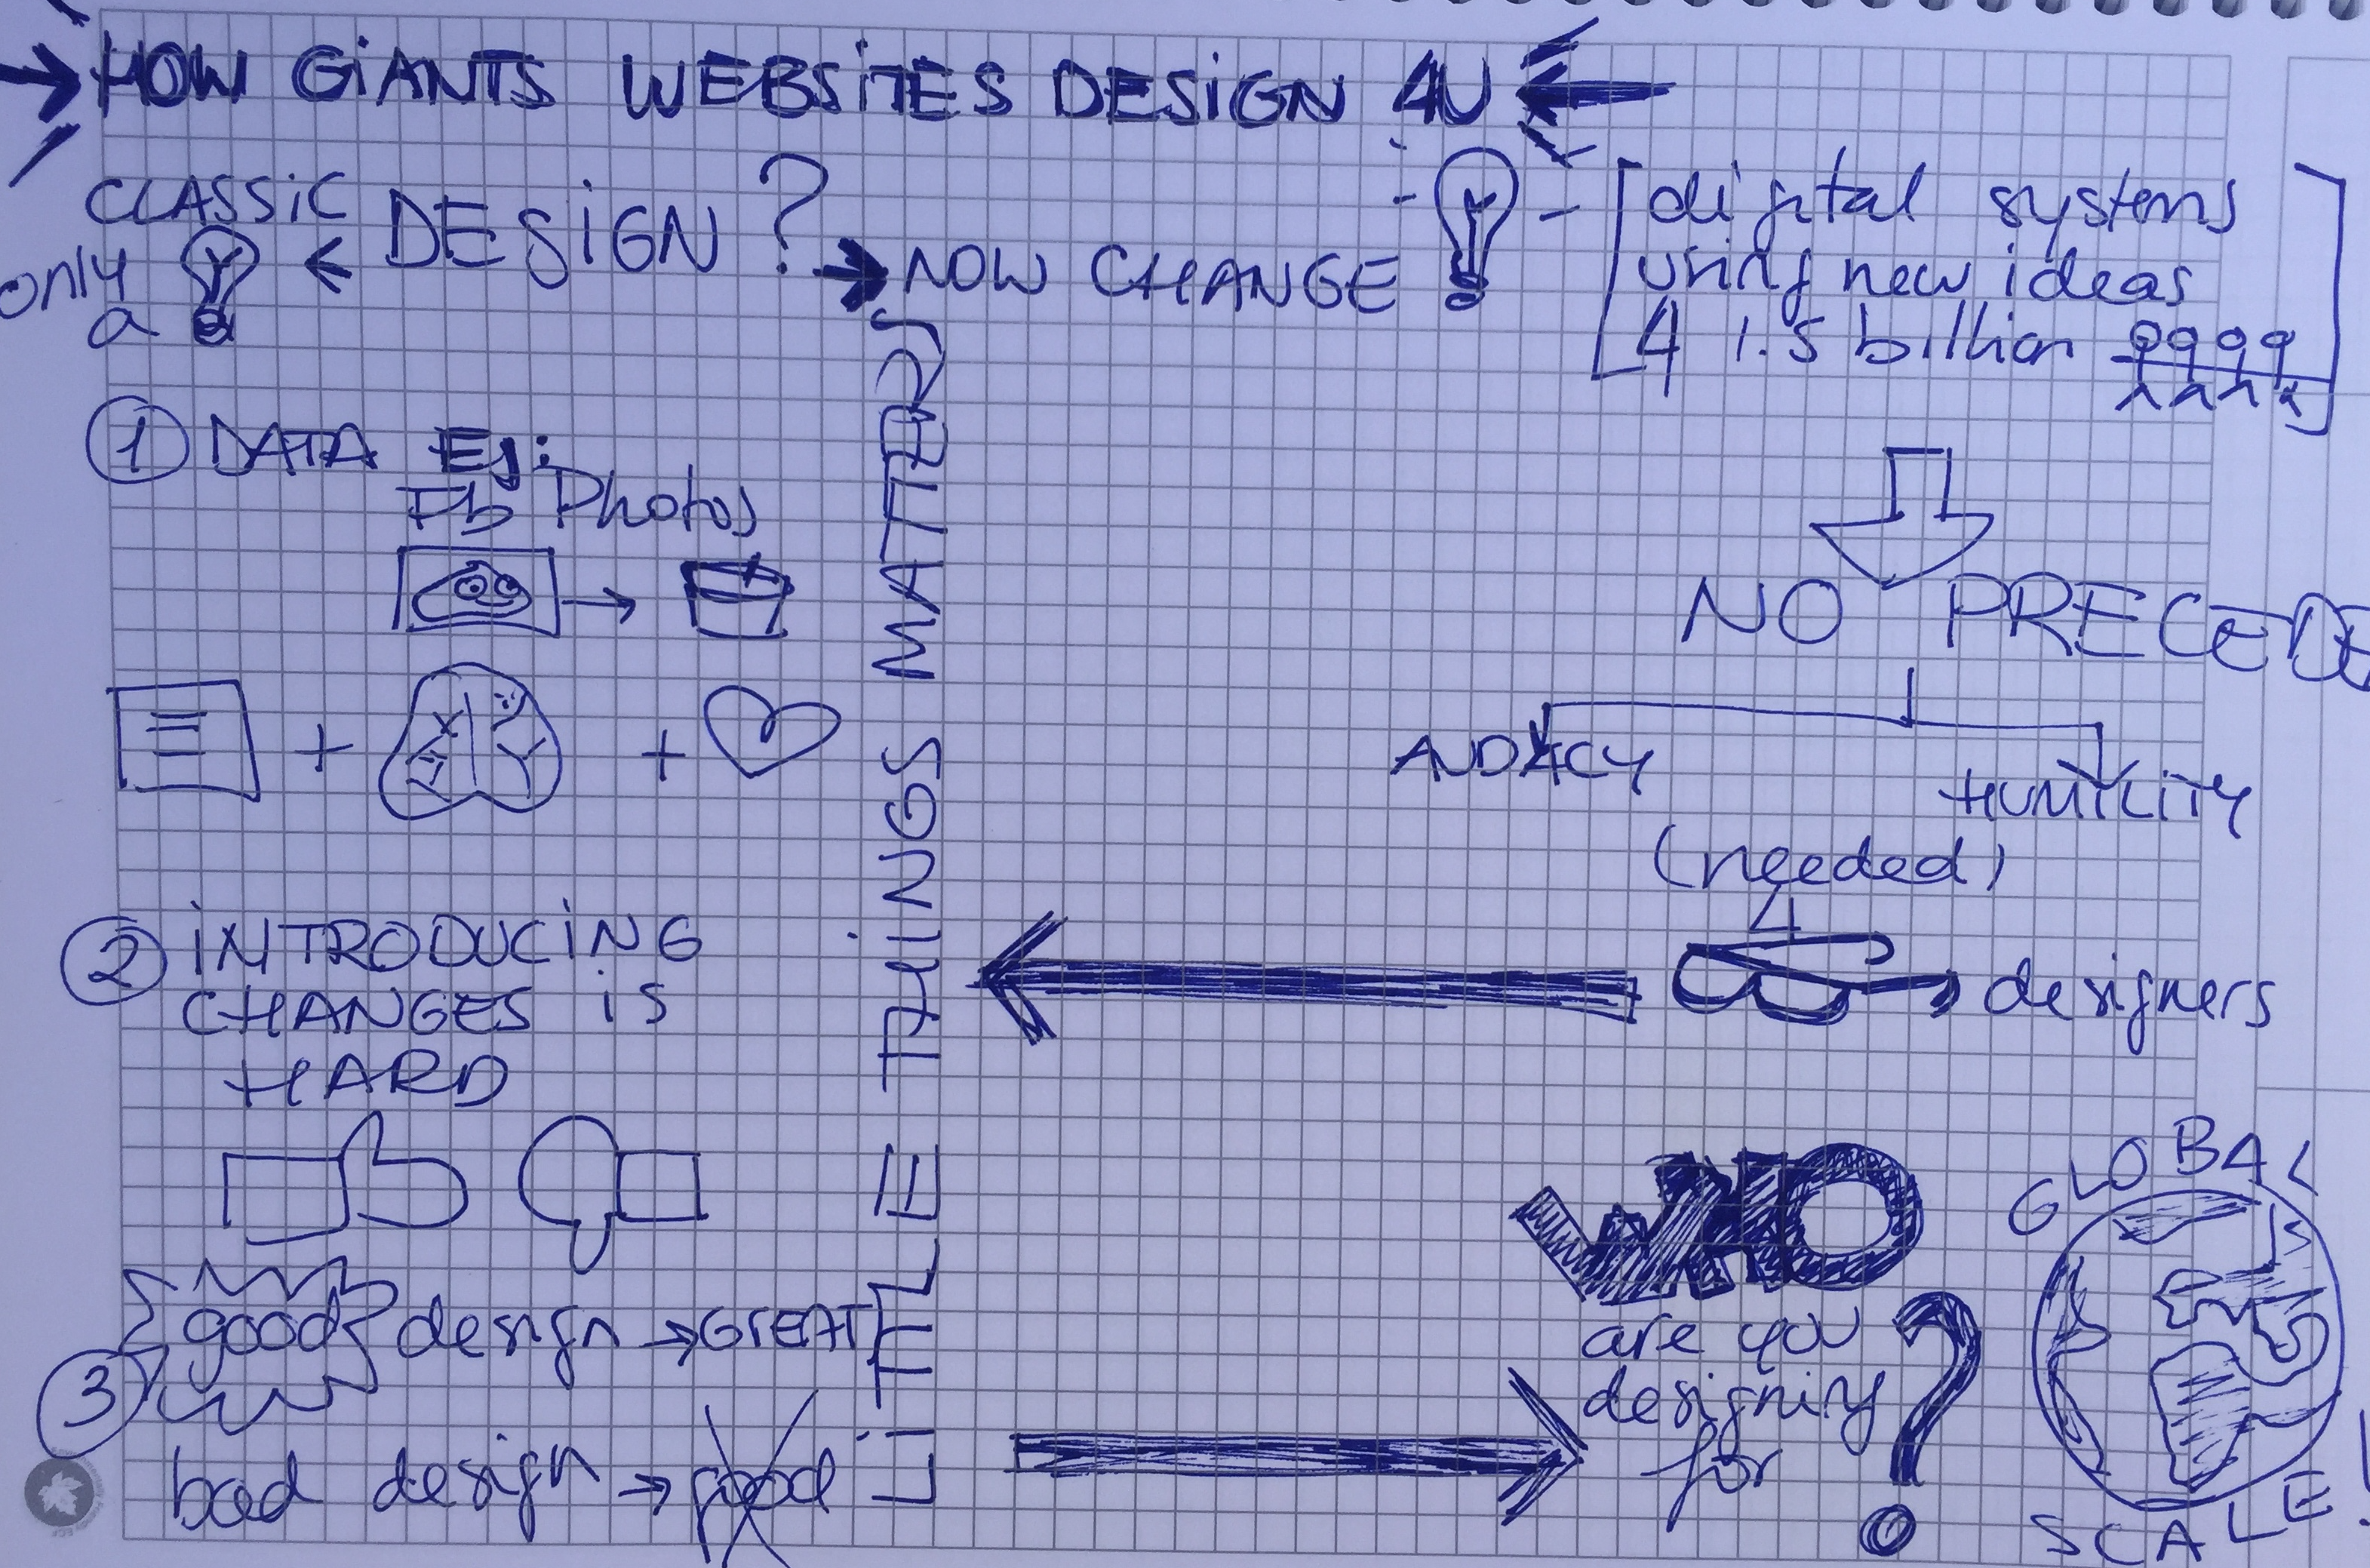 HOW GiANTS WEBSiTES DESiGN 4U
CLASSiC
only
a
DESiGN?
NOW CHANGE
digital systems
using new ideas
4 1.5 billion
NO PRECEDE
AUDACY
HUMILITY
(needed)
4
designers
1 DATA Ej:
Fb Photos
+ +
2 iNTRODUCiNG
CHANGES iS
HARD
3
good design → GREAT
bad design → good
LiTTLE THiNGS MATTERS
WHO
are you
designing
for
?
GLOBAL
SCALE!